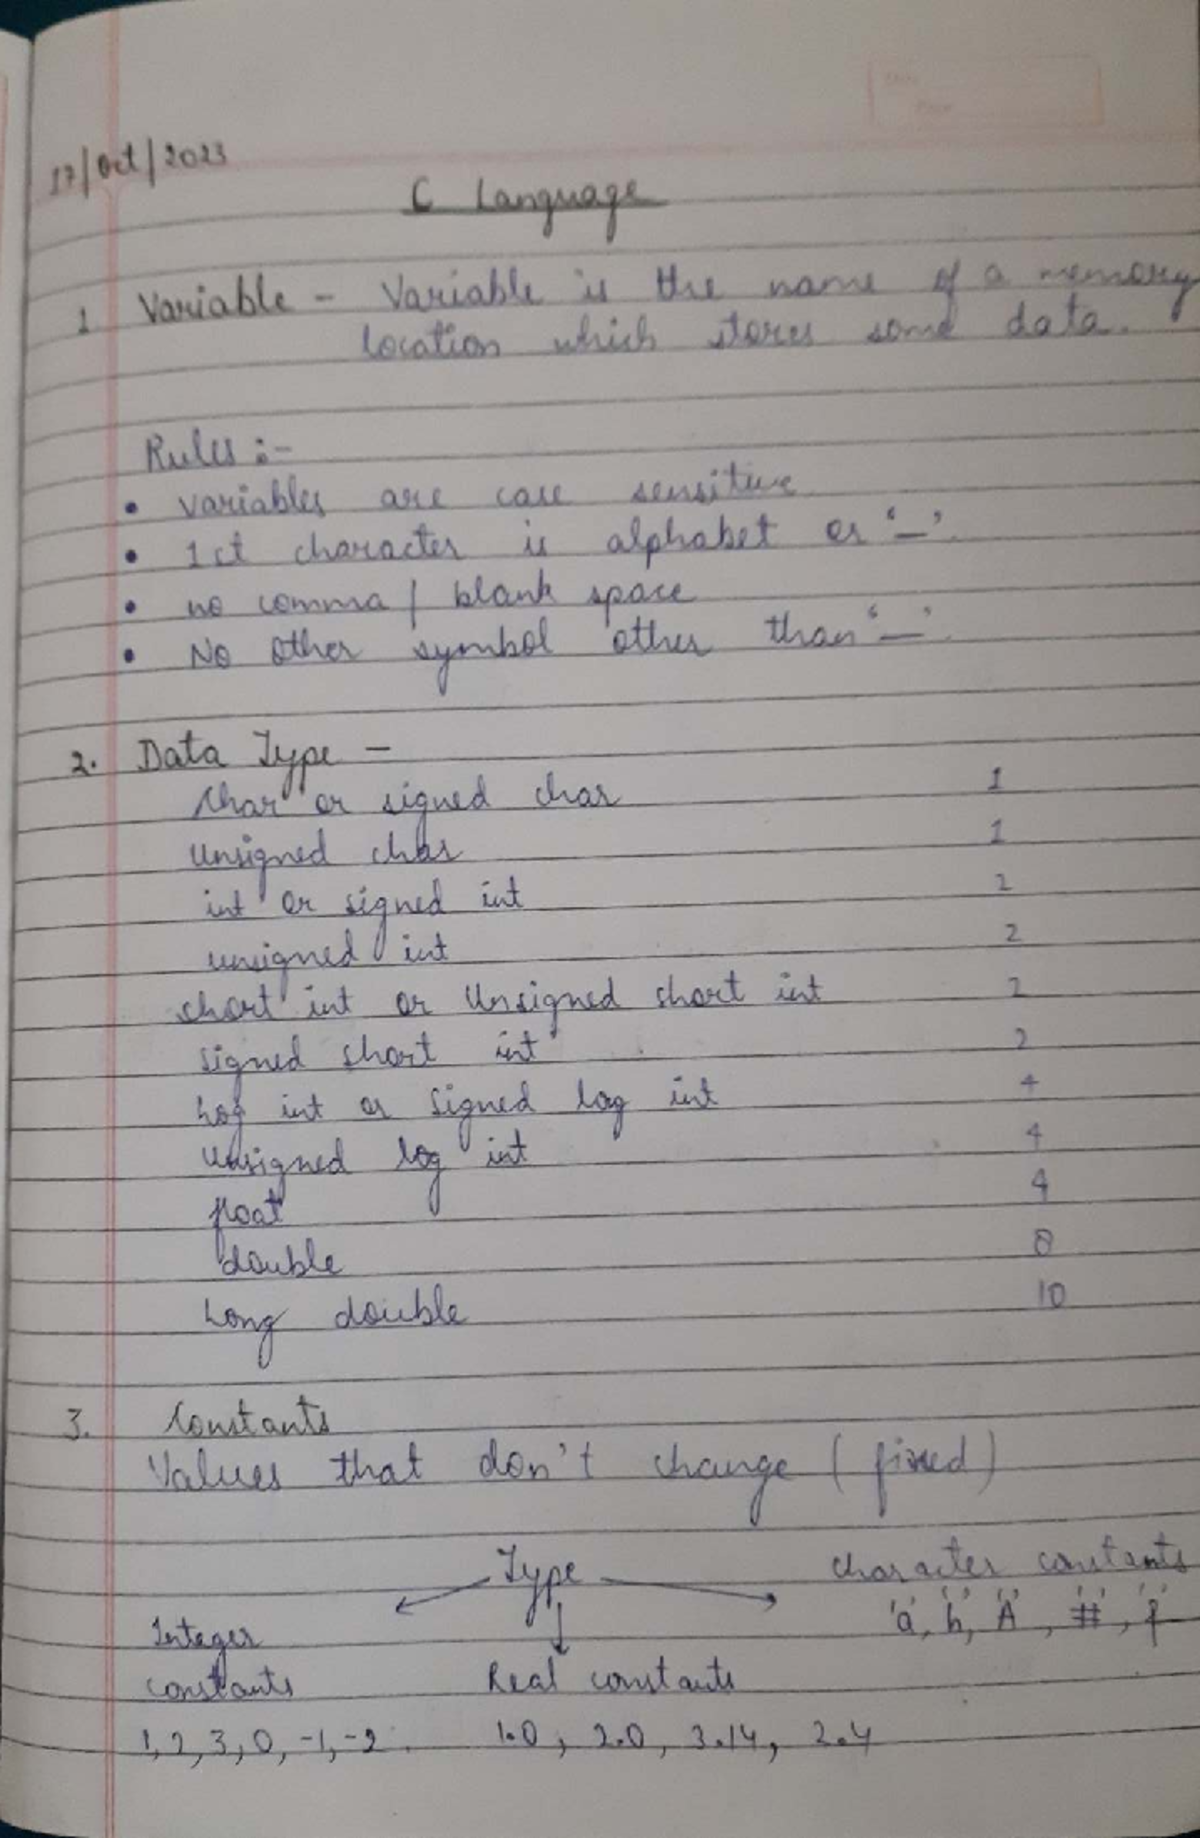 17/Oct/2023
C Language
1 Variable - Variable is the name of a memory
location which stores some data.
Rules :-
• variables are case sensitive
• 1ct character is alphabet or '_'.
• no comma / blank space
• No other symbol other than '_'.
2. Data Type -
Char or signed char 1
unsigned char 1
int or signed int 2
unsigned int 2
short int or Unsigned short int 2
signed short int 2
Log int or signed log int 4
unsigned log int 4
float 4
double 8
Long double 10
3. Constants
Values that don't change (fixed)
Type
character constants
'a', 'b', 'A', '#',
Integer
constants
Real constants
1, 2, 3, 0, -1, -2. 1.0, 2.0, 3.14, 2.4